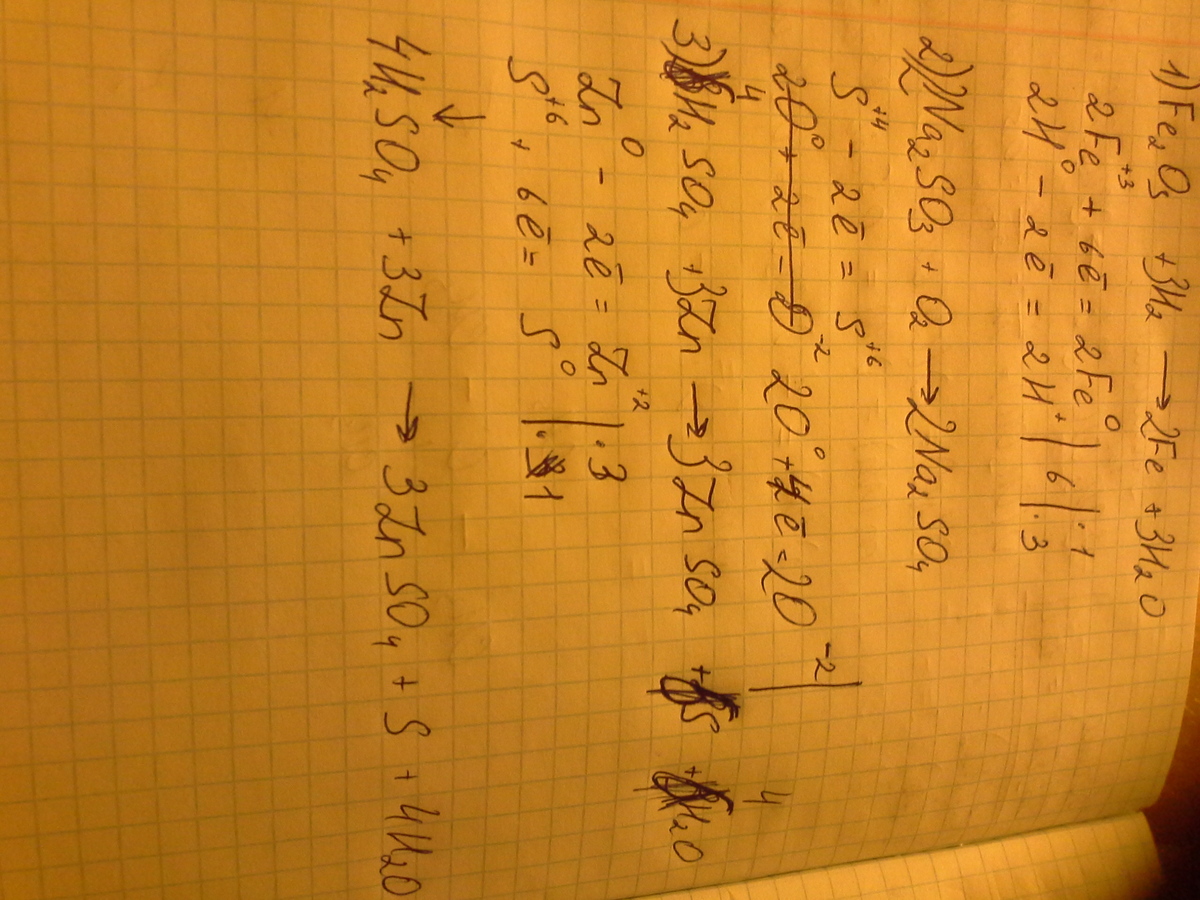 1) Fe₂O₃ + 3H₂ → 2Fe + 3H₂O
2Fe⁺³ + 6ē = 2Fe⁰ | 6 | ·1
2H⁰ - 2ē = 2H⁺ | ·3
2) 2Na₂SO₃ + O₂ → 2Na₂SO₄
S⁺⁴ - 2ē = S⁺⁶
2O⁰ + 2ē - O⁻² 2O⁰ + 4ē = 2O⁻² |
3) 4H₂SO₄ + 3Zn → 3ZnSO₄ + S + 4H₂O
Zn⁰ - 2ē = Zn⁺² | ·3
S⁺⁶ + 6ē = S⁰ | ·1
↓
4H₂SO₄ + 3Zn → 3ZnSO₄ + S + 4H₂O